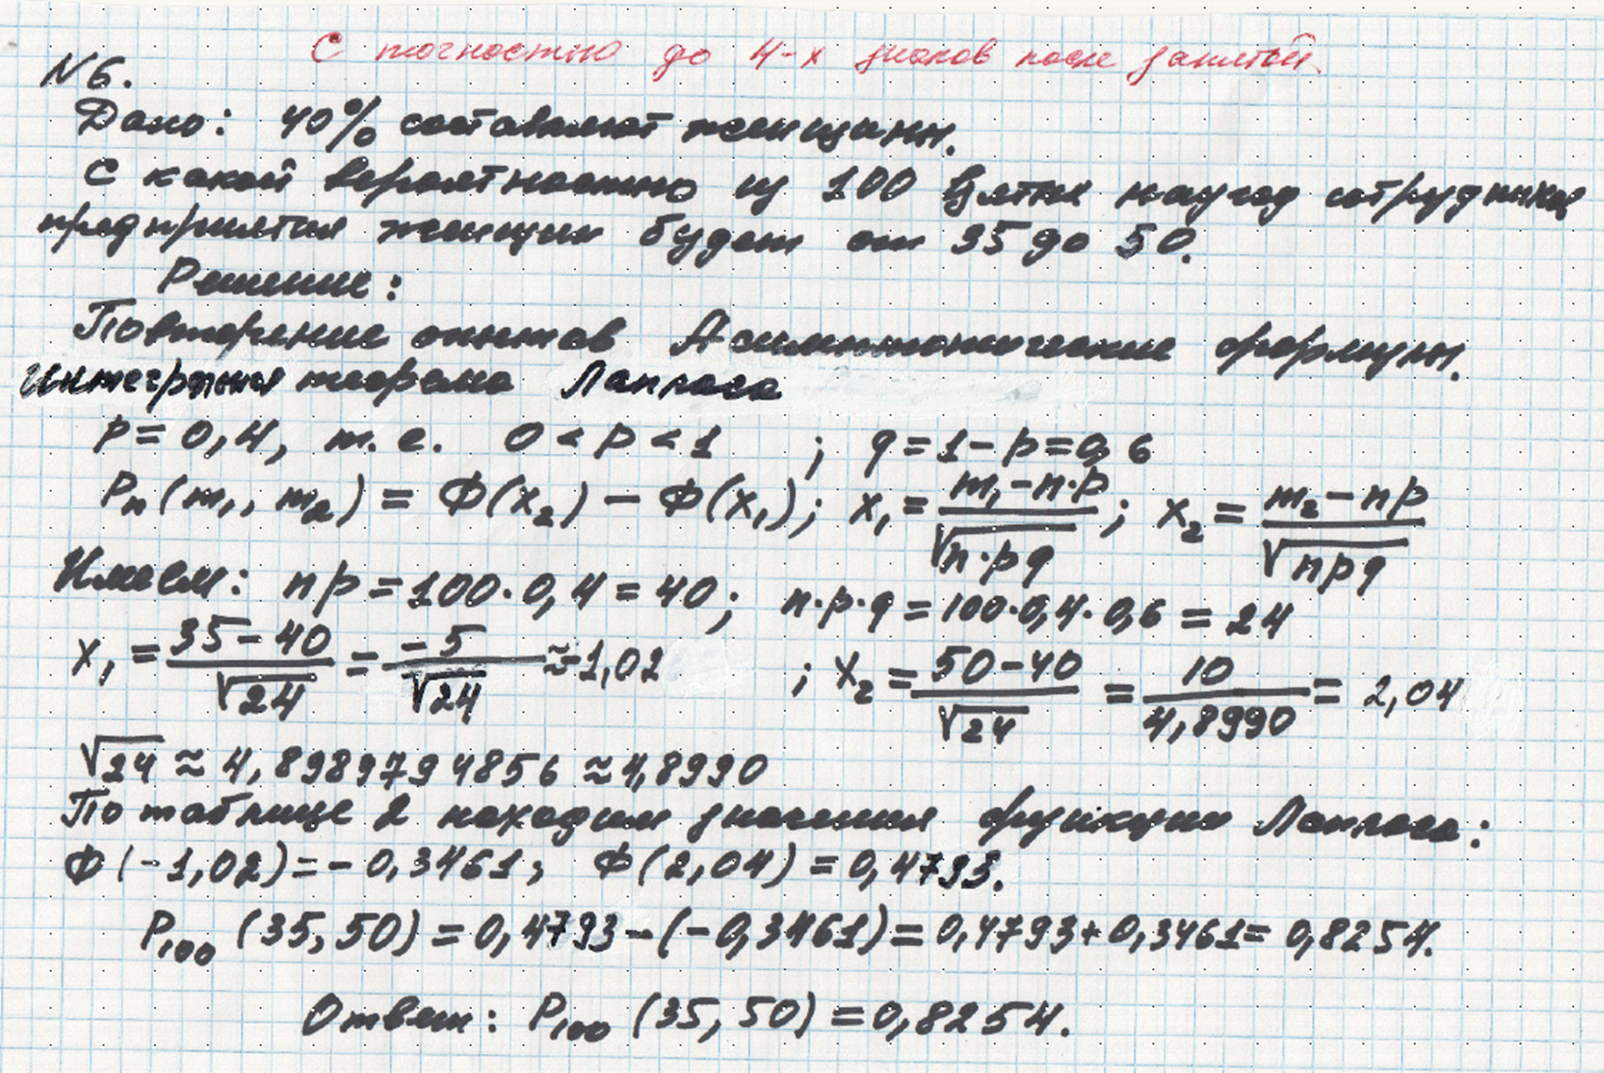 С точностью до 4-х знаков после запятой.
N6.
Дано: 40% составляют женщины.
С какой вероятностью из 100 взятых наугад сотрудников
предприятия женщин будет от 35 до 50.
Решение:
Повторение опытов Асимптотические формулы.
Интегральная теорема Лапласа
p = 0,4, т.е. 0 < p < 1 ; q = 1 - p = 0,6
Pn (m1, m2) = Ф(x2) - Ф(x1); x1 = (m1 - n·p)/√(n·pq) ; x2 = (m2 - np)/√(npq)
Имеем: np = 100·0,4 = 40; n·p·q = 100·0,4·0,6 = 24
x1 = (35 - 40)/√24 = -5/√24 ≈ -1,02 ; x2 = (50 - 40)/√24 = 10/4,8990 = 2,04
√24 ≈ 4,8989794856 ≈ 4,8990
По таблице 2 находим значения функции Лапласа:
Ф(-1,02) = -0,3461; Ф(2,04) = 0,4793.
P100 (35, 50) = 0,4793 - (-0,3461) = 0,4793 + 0,3461 = 0,8254.
Ответ: P100 (35, 50) = 0,8254.